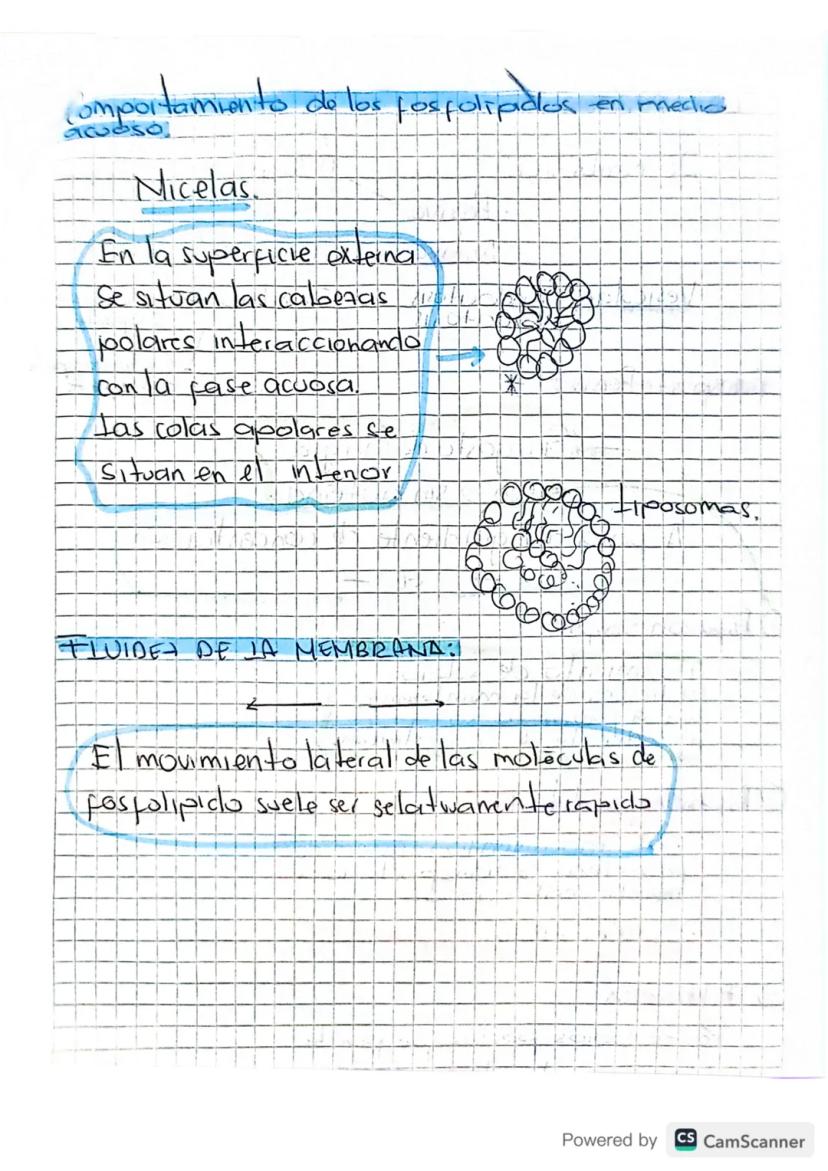 comportamiento de los fosfolipidos en medio
acuoso.
Micelas.
En la superficie externa
se situan las cabezas
polares interaccionando
con la fase acuosa.
Las colas apolares se
situan en el interior
Liposomas.
FLUIDEZ DE LA MEMBRANA:
El movimiento lateral de las moléculas de
fosfolipido suele ser relativamente rapido
Powered by CS CamScanner